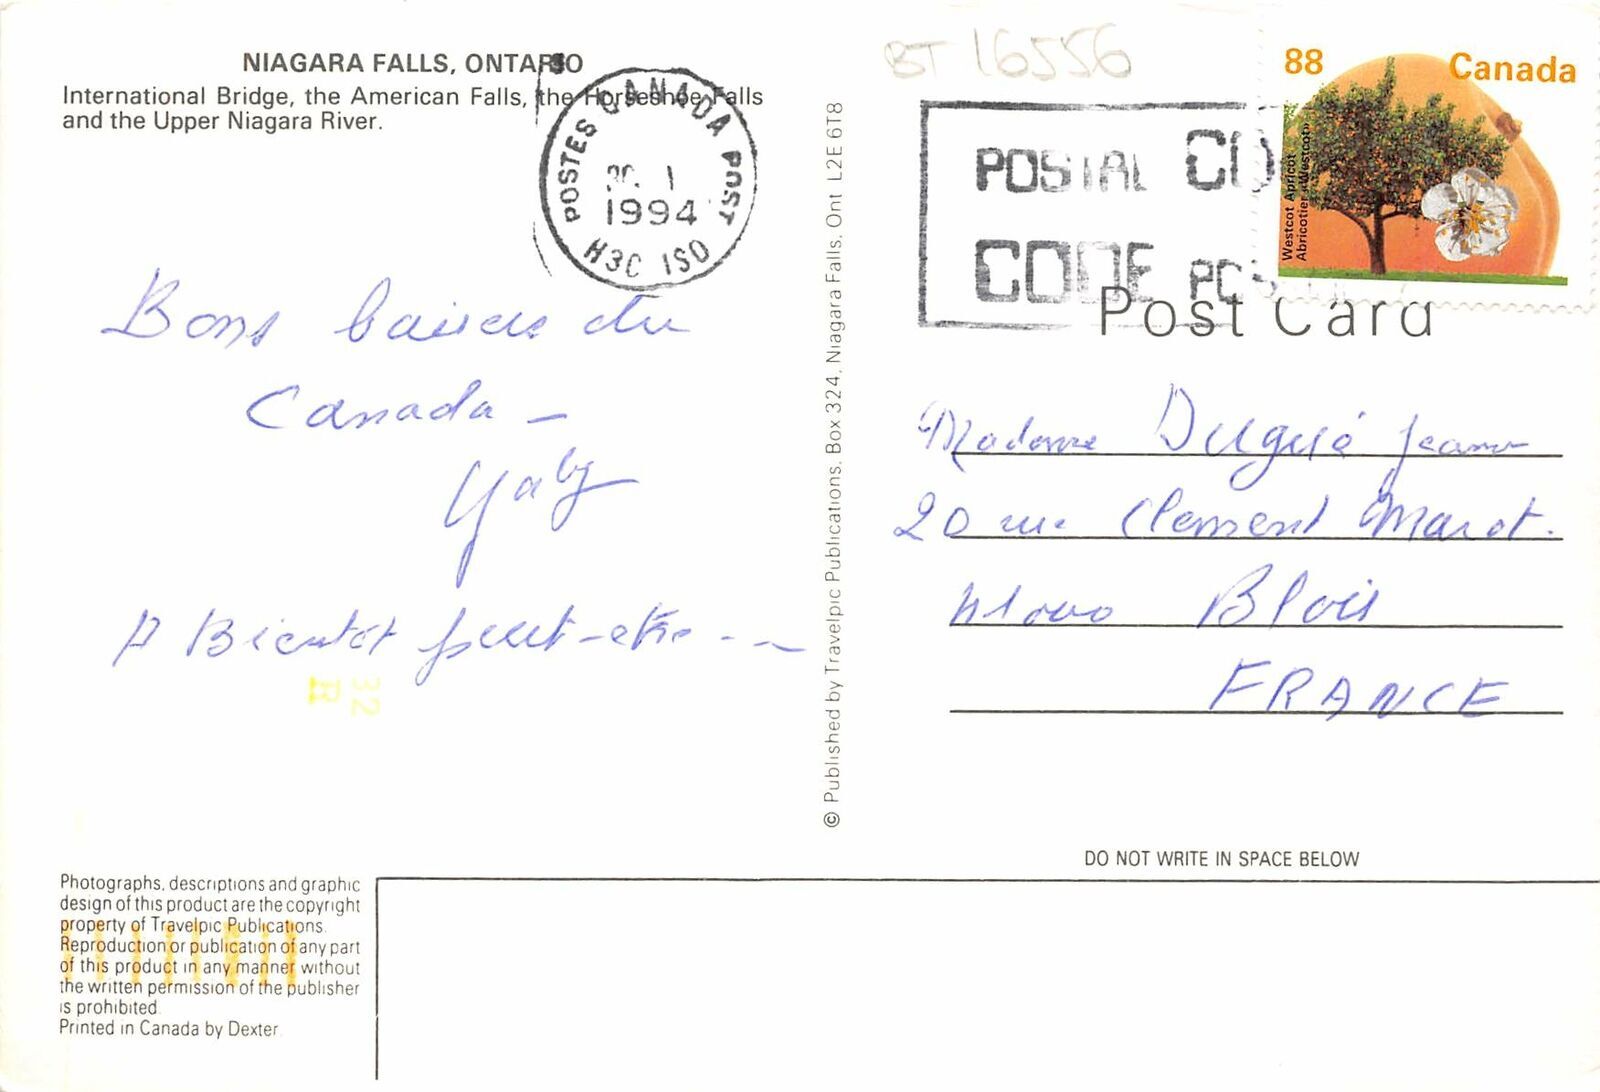 NIAGARA FALLS, ONTARIO
International Bridge, the American Falls, the Horseshoe Falls
and the Upper Niagara River.
POSTES CANADA POST
1994
H3C 1S0
Bons baisers du
Canada -
Gaby
A Bientôt peut-etre - - ~
32
Photographs, descriptions and graphic
design of this product are the copyright
property of Travelpic Publications.
Reproduction or publication of any part
of this product in any manner without
the written permission of the publisher
is prohibited.
Printed in Canada by Dexter.
© Published by Travelpic Publications, Box 324, Niagara Falls, Ont L2E 6T8
BT 16556
POSTAL CO
CODE PO
88 Canada
Westcot Apricot
Abricotier «Westcot»
Post Card
Madame Dugué Jeanne
20 rue Clement Marot.
41000 Blois
FRANCE
DO NOT WRITE IN SPACE BELOW